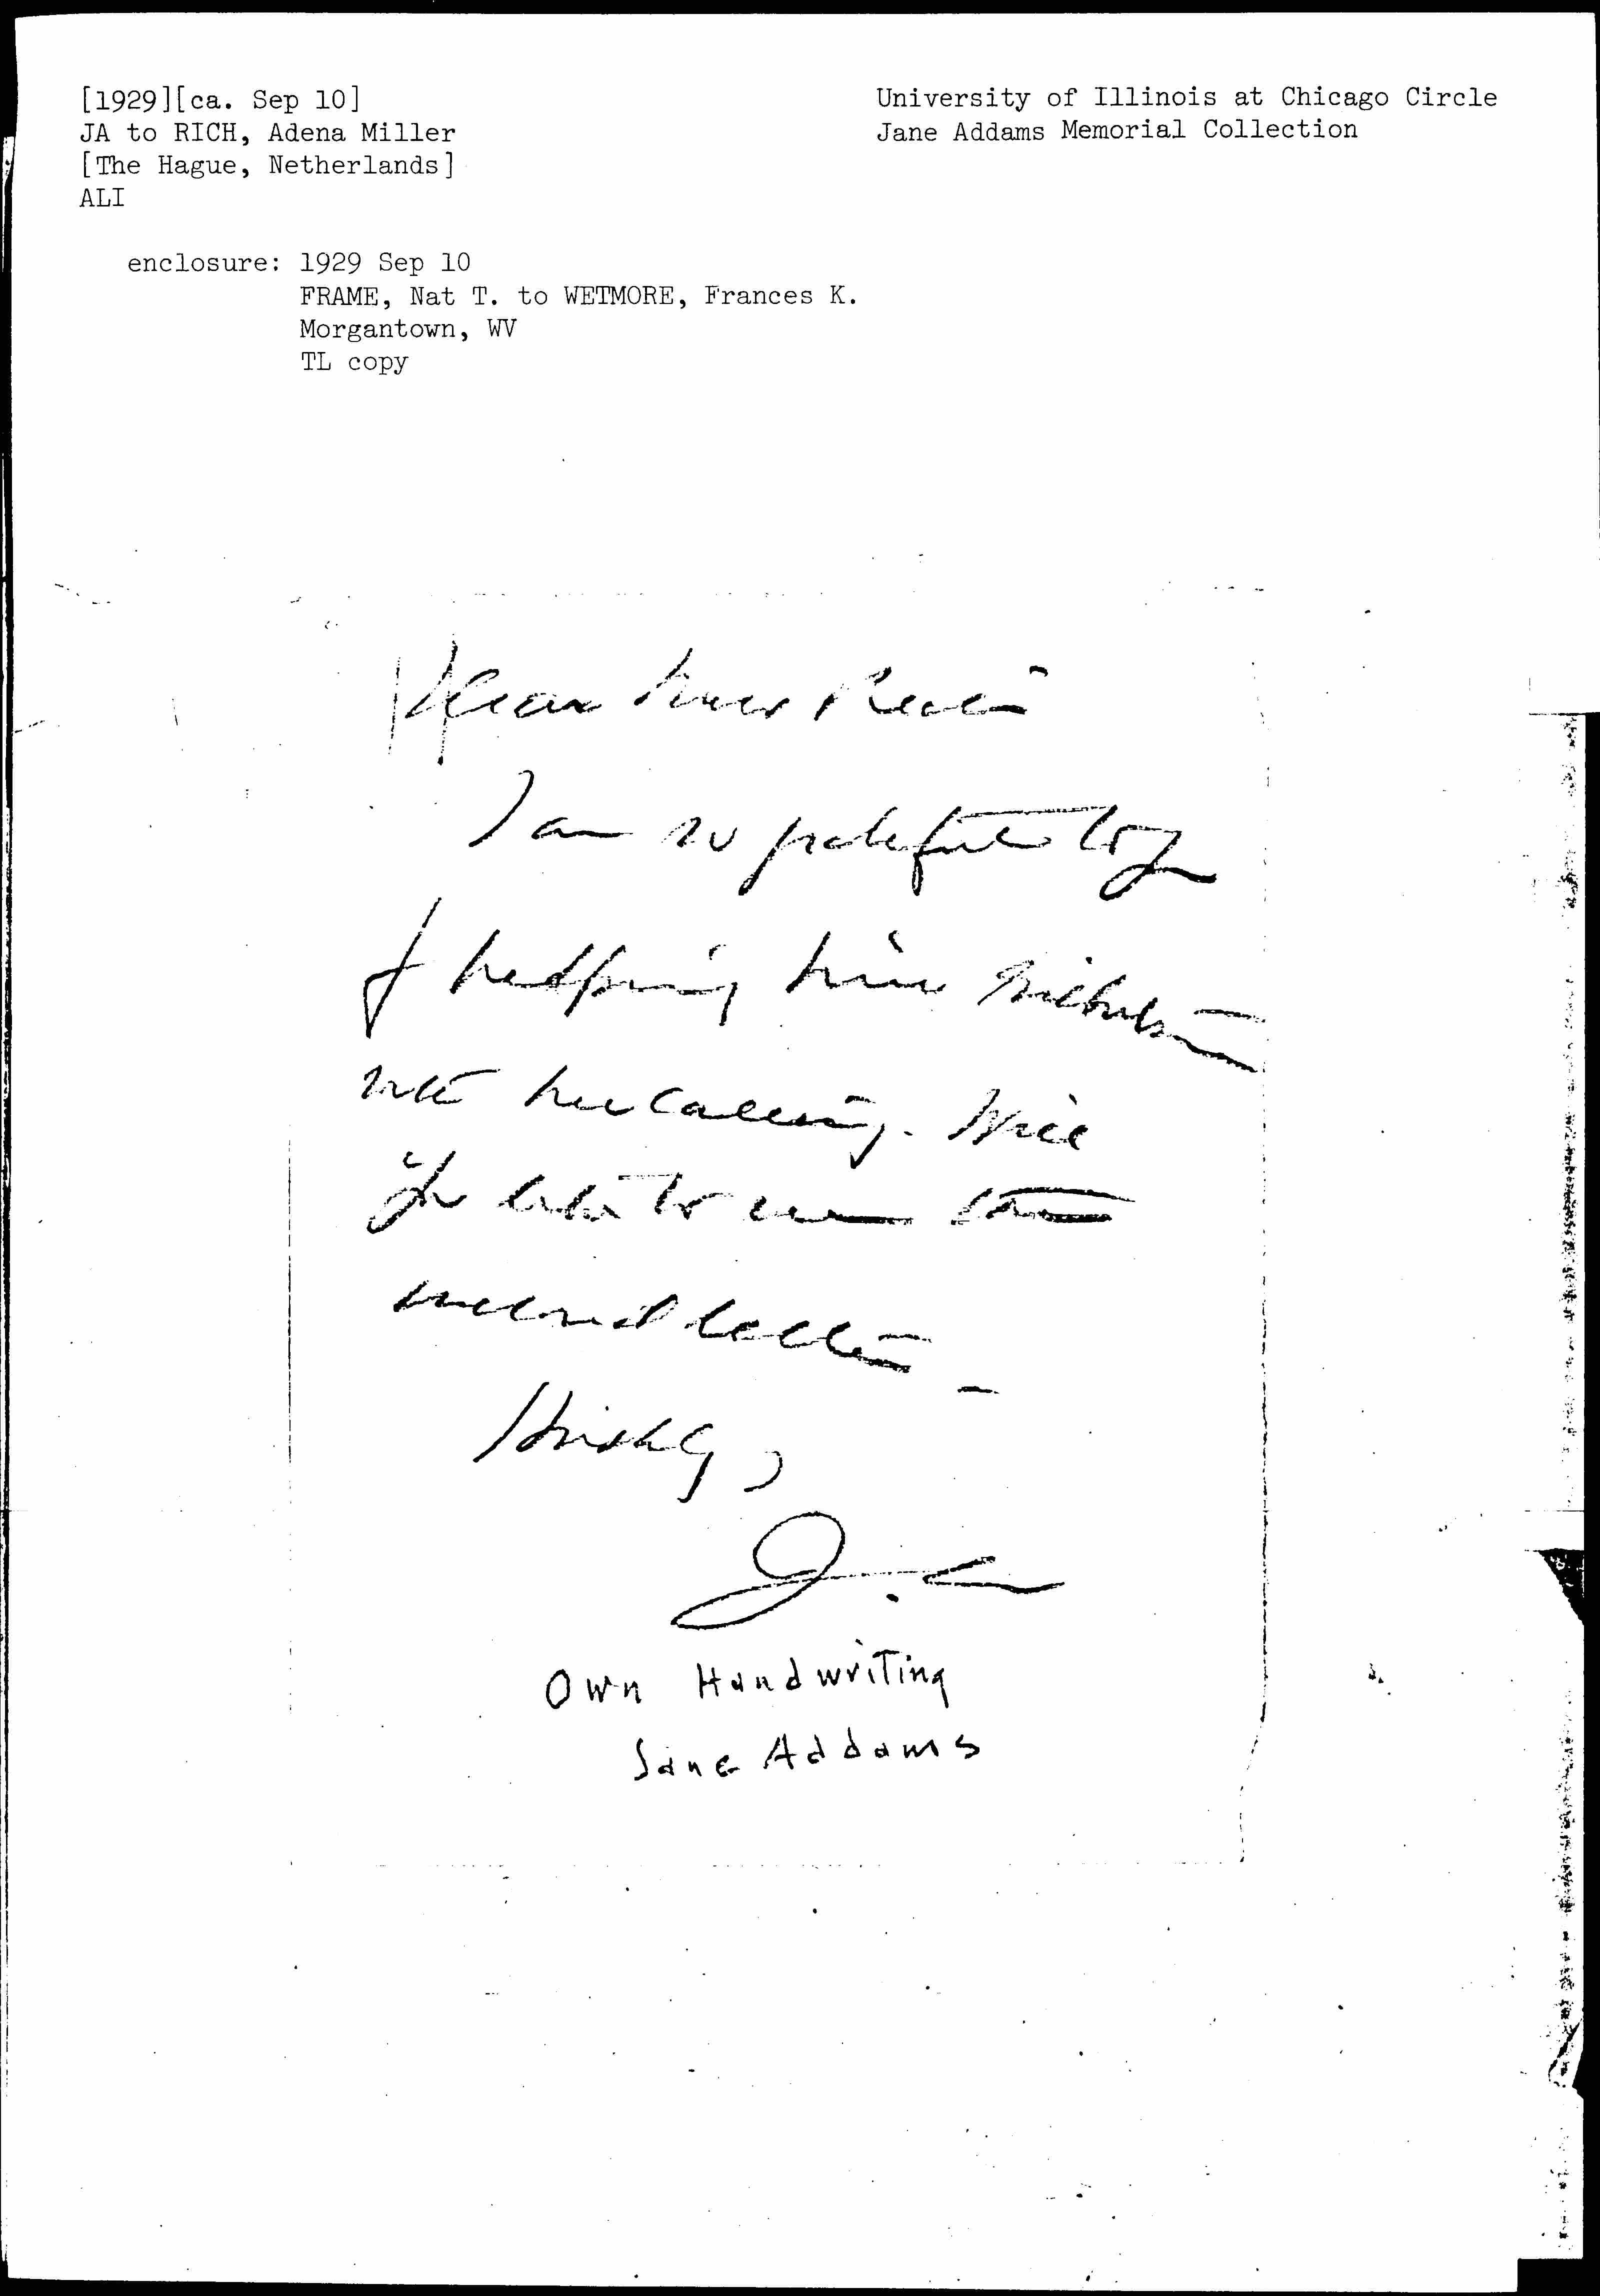 [1929][ca. Sep 10]
JA to RICH, Adena Miller
[The Hague, Netherlands]
ALI
University of Illinois at Chicago Circle
Jane Addams Memorial Collection
enclosure: 1929 Sep 10
FRAME, Nat T. to WETMORE, Frances K.
Morgantown, WV
TL copy
Dear
I am so grateful to you
for helping
into her calling. Will
you like to see the
enclosed letter
J.A.
Own Handwriting
Jane Addams